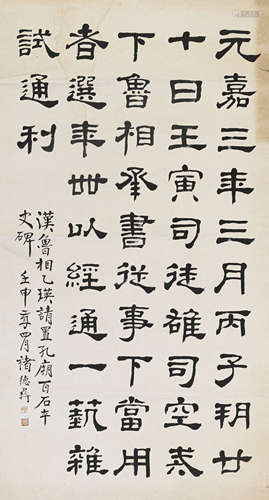 元嘉三年三月丙子朔廿
七日壬寅司徒雄司空戒
下魯相承書從事下當用
者選年卌以經通一蓺雜
試通利
漢魯相乙瑛請置孔廟百石卒
史碑 壬申年四月褚德彝